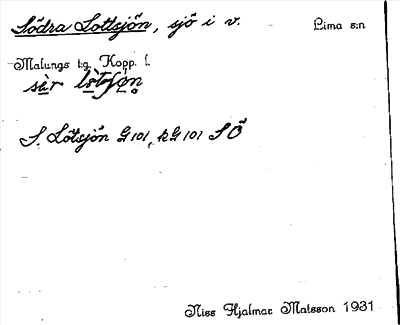 Södra Lottsjön, sjö i v. Lima s:n
Malungs t:g. Kopp. l.
S. Lötsjön G 101, k G 101 S Ö
Niss Hjalmar Matsson 1931